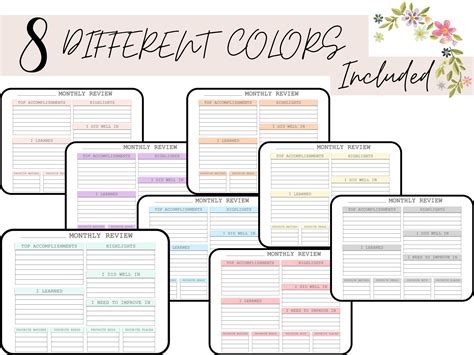 8 DIFFERENT COLORS
Included
MONTHLY REVIEW
TOP ACCOMPLISHMENTS HIGHLIGHTS
I DID WELL IN
I LEARNED
MONTHLY REVIEW
TOP ACCOMPLISHMENTS HIGHLIGHTS
I DID WELL IN
I LEARNED
MONTHLY REVIEW
TOP ACCOMPLISHMENTS HIGHLIGHTS
I DID WELL IN
I LEARNED
MONTHLY REVIEW
TOP ACCOMPLISHMENTS HIGHLIGHTS
I DID WELL IN
I LEARNED
MONTHLY REVIEW
TOP ACCOMPLISHMENTS HIGHLIGHTS
I DID WELL IN
I LEARNED
MONTHLY REVIEW
TOP ACCOMPLISHMENTS HIGHLIGHTS
I DID WELL IN
I LEARNED
I NEED TO IMPROVE IN
MONTHLY REVIEW
TOP ACCOMPLISHMENTS HIGHLIGHTS
I DID WELL IN
I LEARNED
I NEED TO IMPROVE IN
MONTHLY REVIEW
TOP ACCOMPLISHMENTS HIGHLIGHTS
I DID WELL IN
I LEARNED
I NEED TO IMPROVE IN